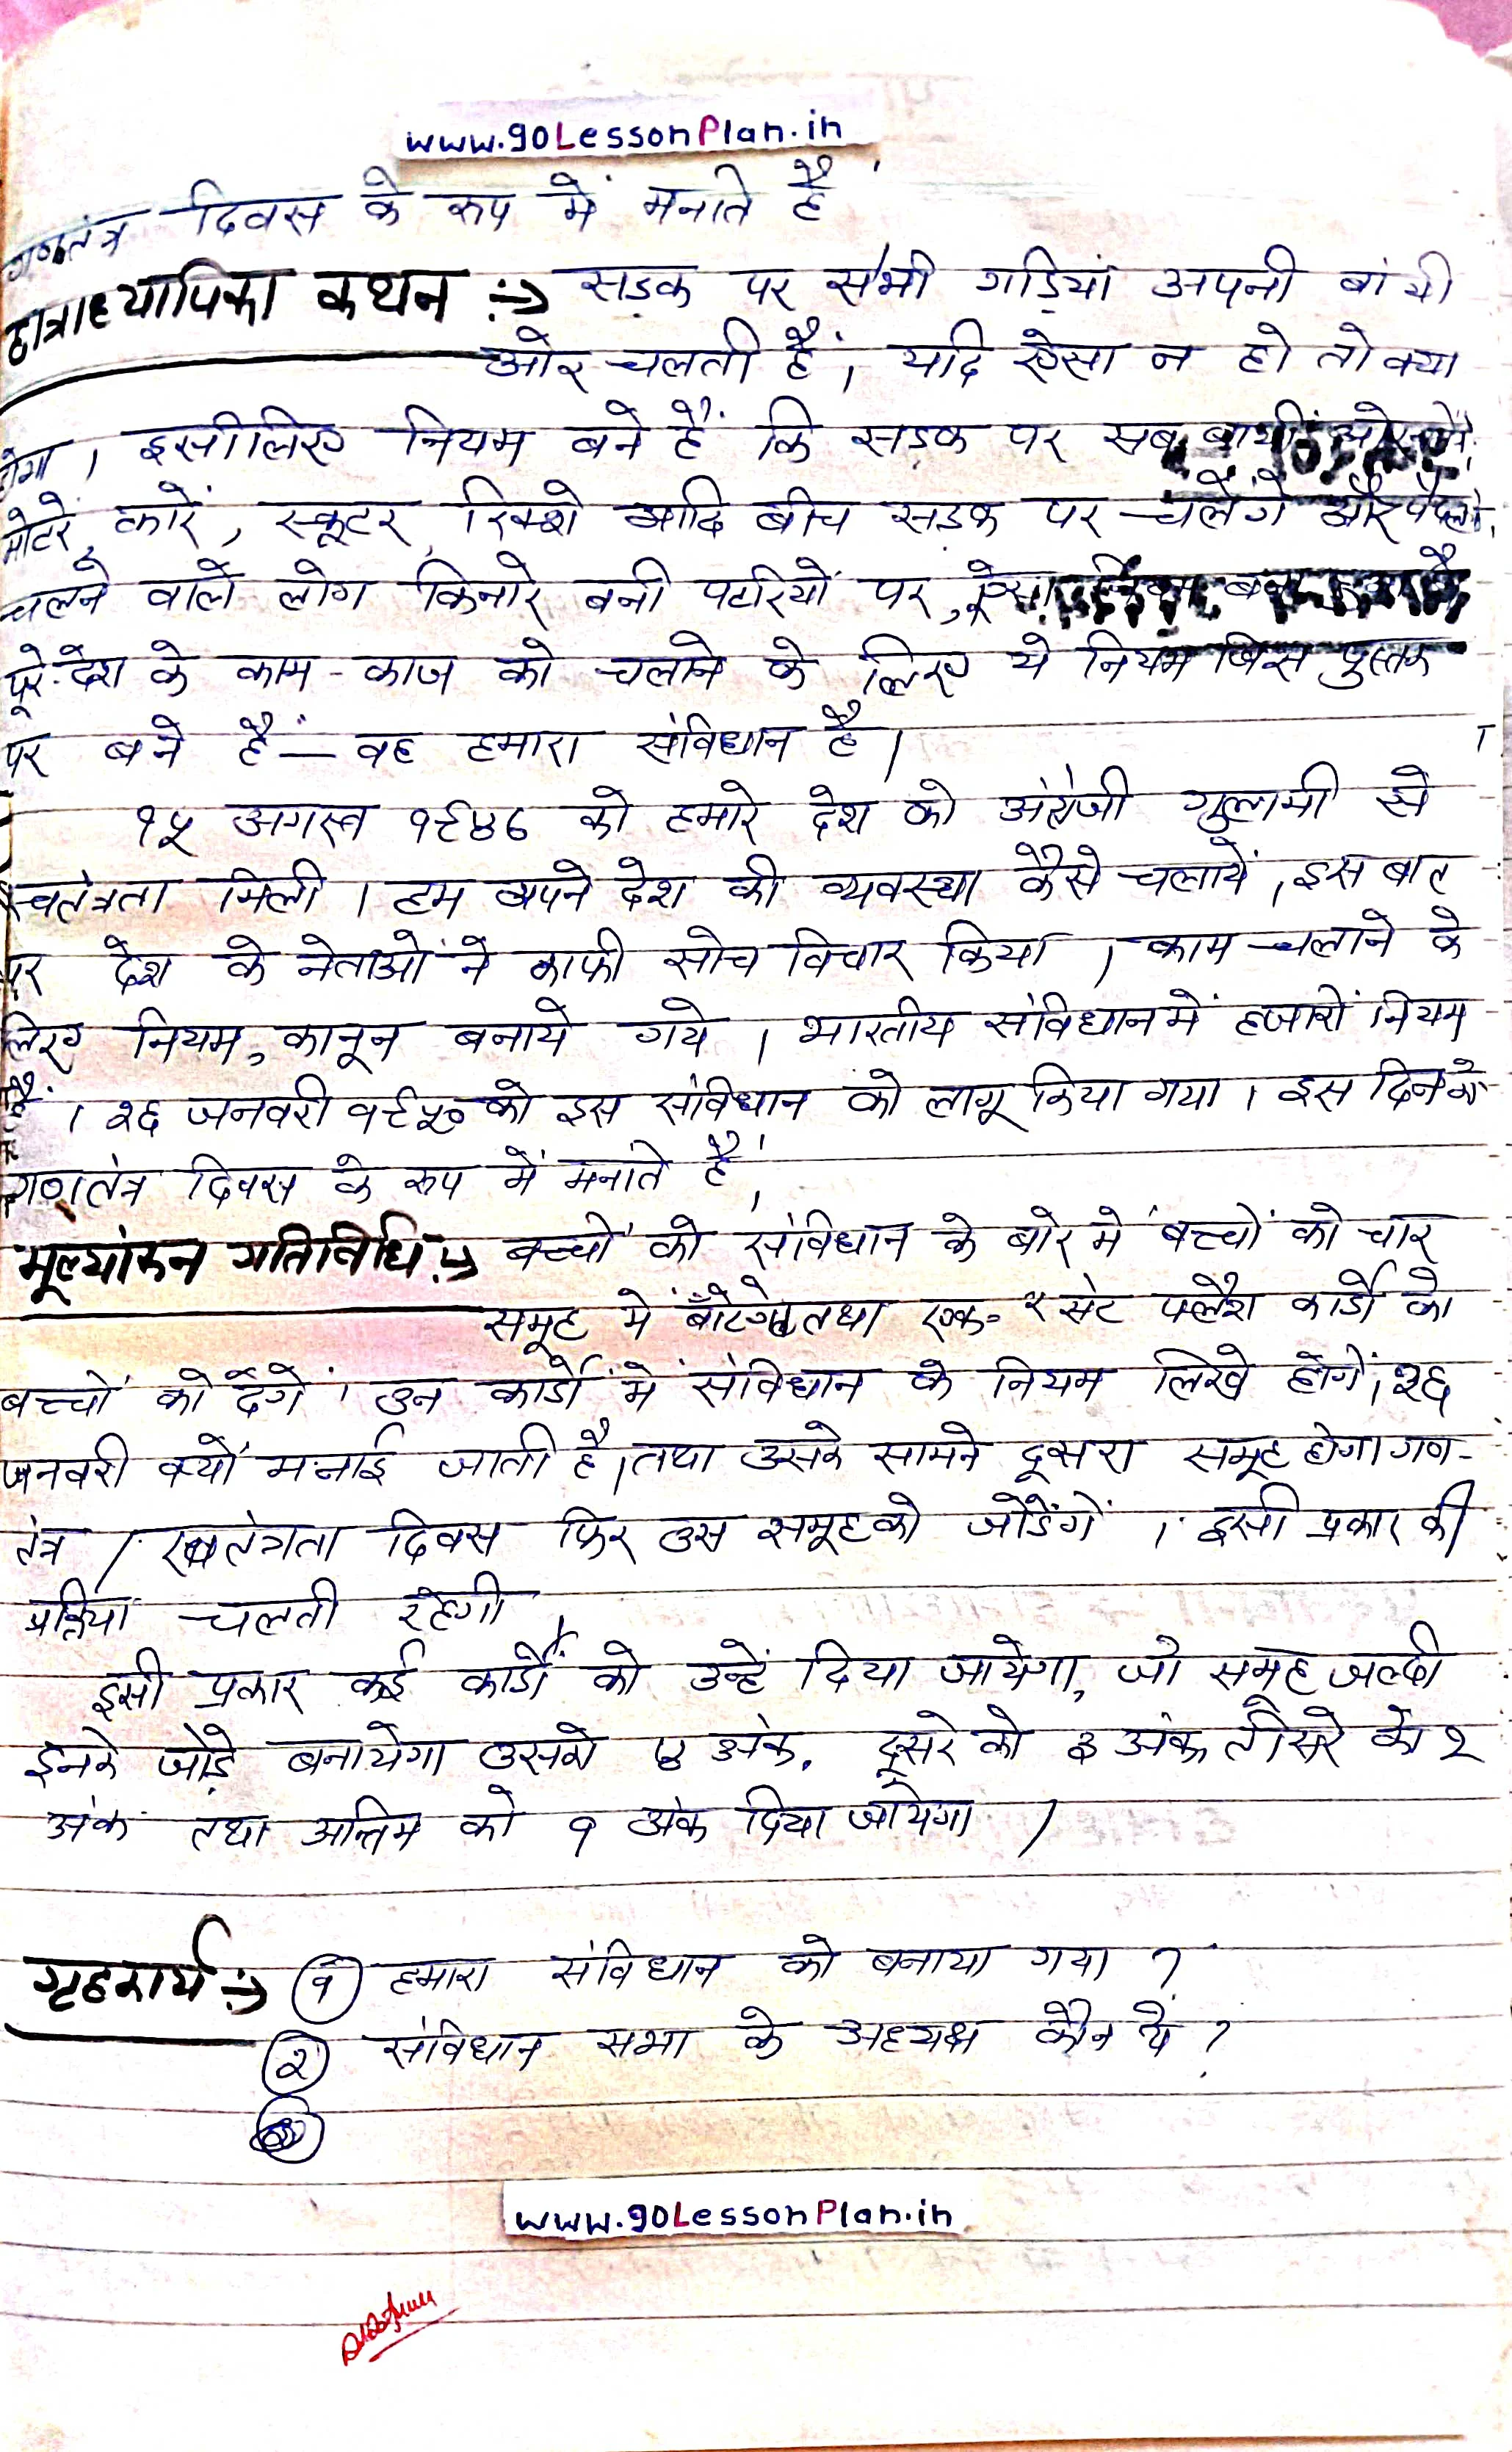 www.90LessonPlan.in
गणतंत्र दिवस के रूप में मनाते है
छात्राध्यापिका कथन :-> सड़क पर सभी गाड़ियां अपनी बांयी
ओर चलती हैं, यदि ऐसा न हो तो क्या
होगा । इसीलिए नियम बने हैं कि सड़क पर सब
मोटरे, कारें, स्कूटर, रिक्शे आदि बीच सड़क पर चलेंगे और पैदल
चलने वाले लोग किनारे बनी पटरियों पर,
पूरे देश के काम-काज को चलाने के लिए ये नियम जिस पुस्तक
पर बने हैं — वह हमारा संविधान है ।
१५ अगस्त १९४७ को हमारे देश को अंग्रेजी गुलामी से
स्वतंत्रता मिली । हम अपने देश की व्यवस्था कैसे चलायें, इस बात
पर देश के नेताओं ने काफी सोच विचार किया । काम चलाने के
लिए नियम, कानून बनाये गये । भारतीय संविधान में हजारों नियम
हैं । २६ जनवरी १९५० को इस संविधान को लागू किया गया । इस दिन को
गणतंत्र दिवस के रूप में मनाते हैं,
मूल्यांकन गतिविधि :-> बच्चों को संविधान के बारे में बच्चों को चार
समूह में बाँटेंगे तथा एक-२ सेट फ्लैश कार्डों को
बच्चों को देंगें । उन कार्डों में संविधान के नियम लिखे होंगें, २६
जनवरी क्यों मनाई जाती है, तथा उसके सामने दूसरा समूह होगा गण-
तंत्र / स्वतंत्रता दिवस फिर उस समूह को जोडेंगें । इसी प्रकार की
प्रक्रिया चलती रहेगी ।
इसी प्रकार कई कार्डों को उन्हें दिया जायेगा, जो समूह जल्दी
इनके जोड़े बनायेगा उसको ४ अंक, दूसरे को ३ अंक तीसरे को २
अंक तथा अन्तिम को १ अंक दिया जायेगा ।
गृहकार्य :-> १ हमारा संविधान को बनाया गया ?
२ संविधान सभा के अध्यक्ष कौन थे ?
www.90LessonPlan.in